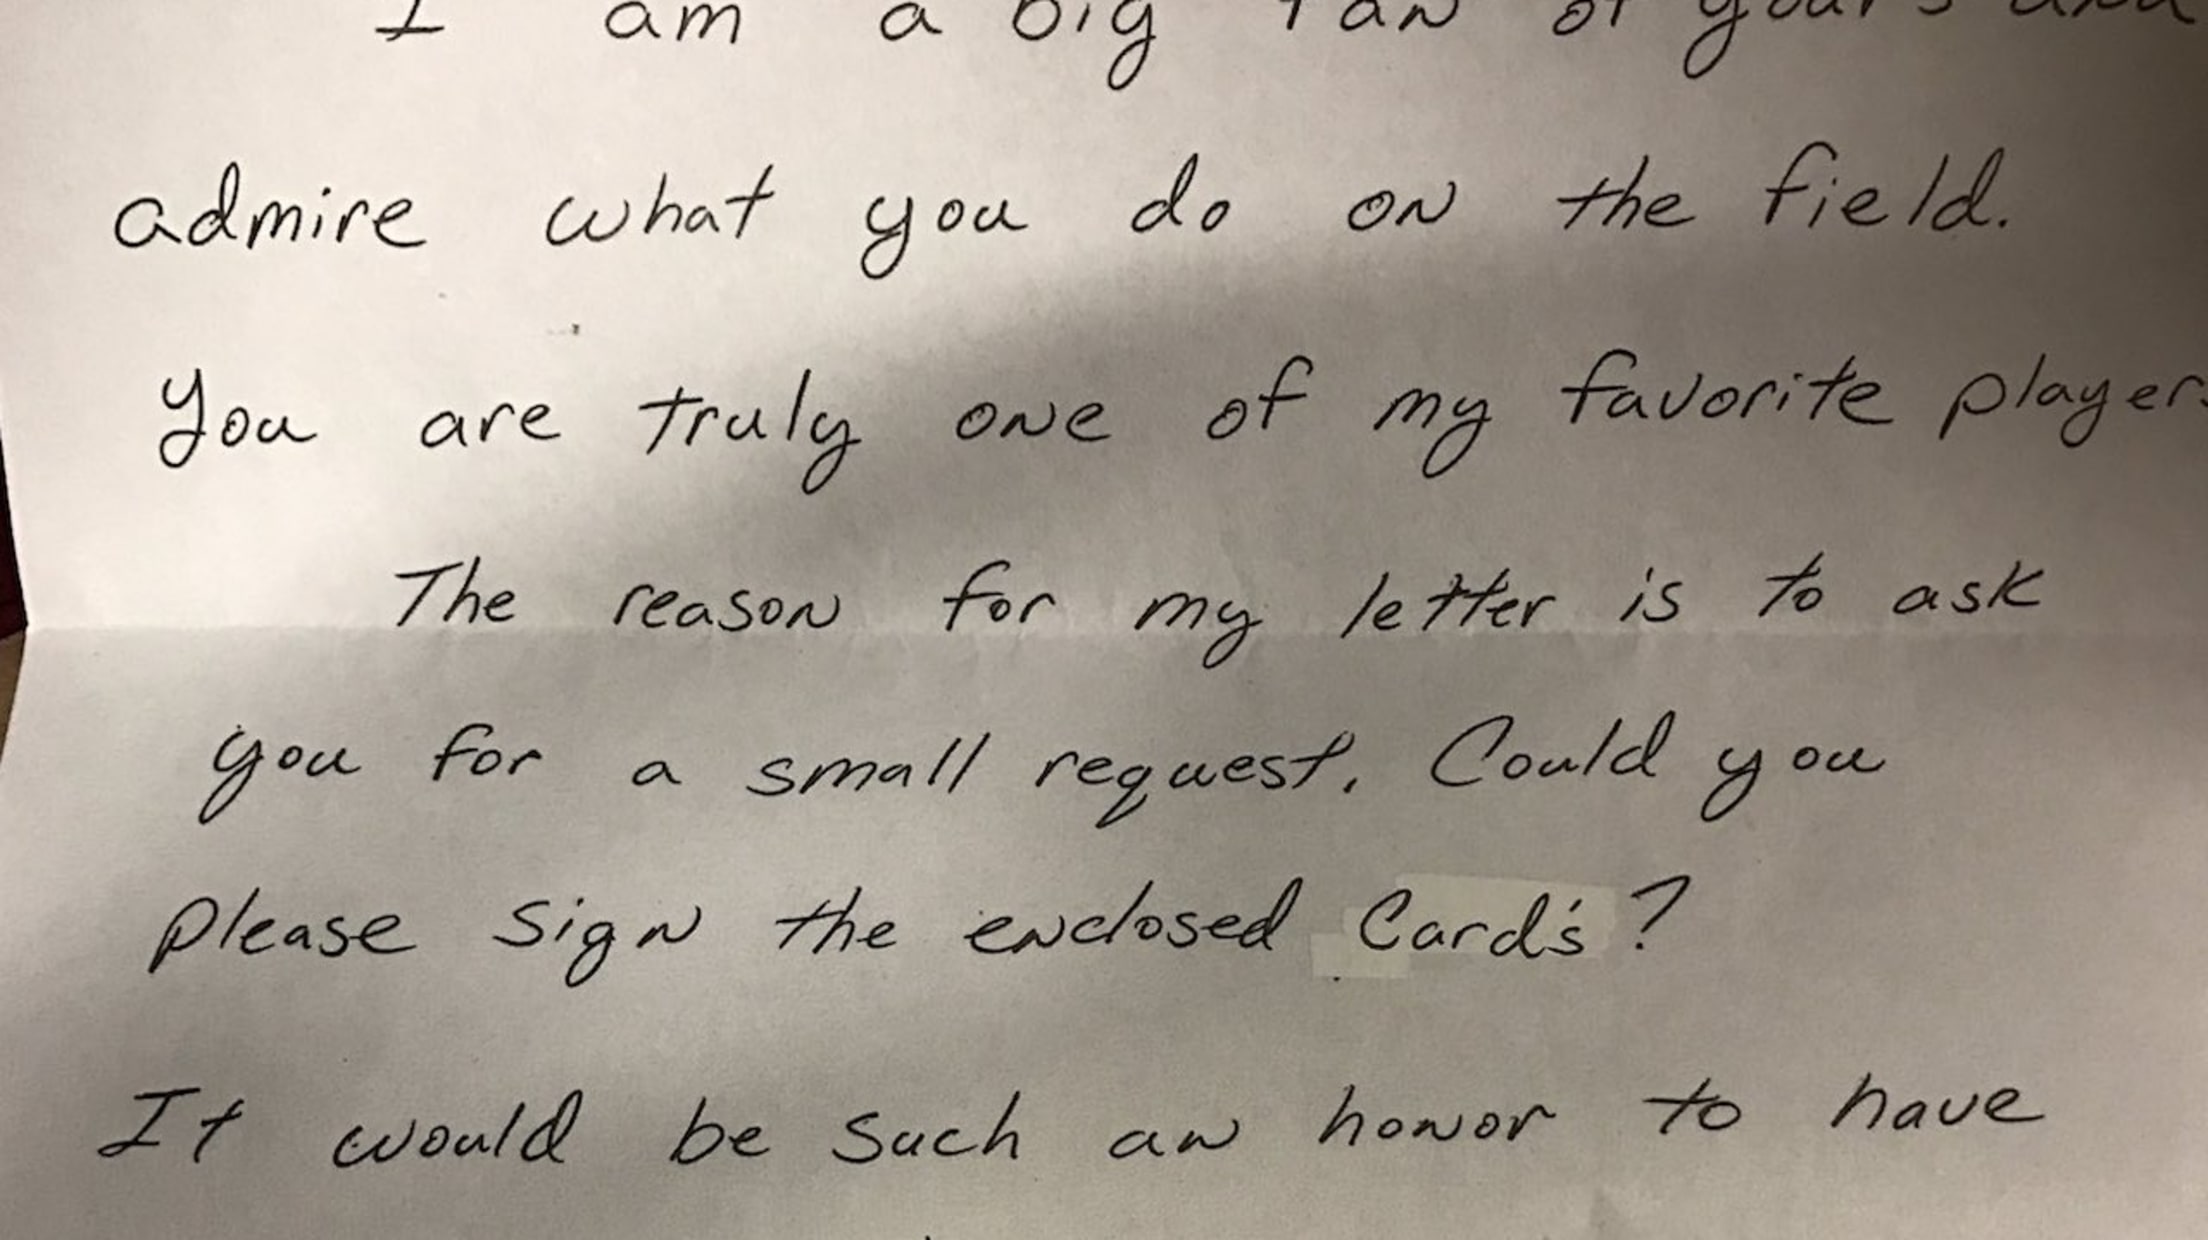 I am a big fan of yours and
admire what you do on the field.
You are truly one of my favorite players
The reason for my letter is to ask
you for a small request. Could you
please sign the enclosed Card's?
It would be such an honor to have